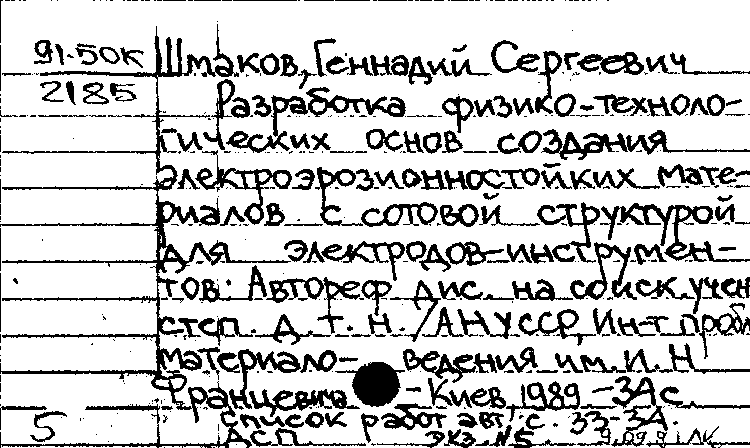 91-50к
2185
Шмаков, Геннадий Сергеевич
Разработка физико-техноло-
гических основ создания
электроэрозионностойких мате-
риалов с сотовой структурой
для электродов-инструмен-
тов: Автореф дис. на соиск. учен
степ. д. т. н. / АН УССР, Ин-т пробл
материало- ведения им. И. Н.
Францевича - Киев, 1989. - 34 с.
5 список работ авт. с. 33-34
ДСП экз. №5